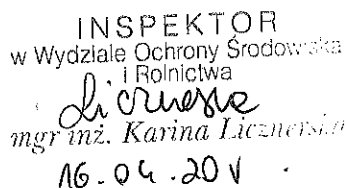 INSPEKTOR
w Wydziale Ochrony Środowiska
i Rolnictwa
mgr inż. Karina Licznerska
16.04.20